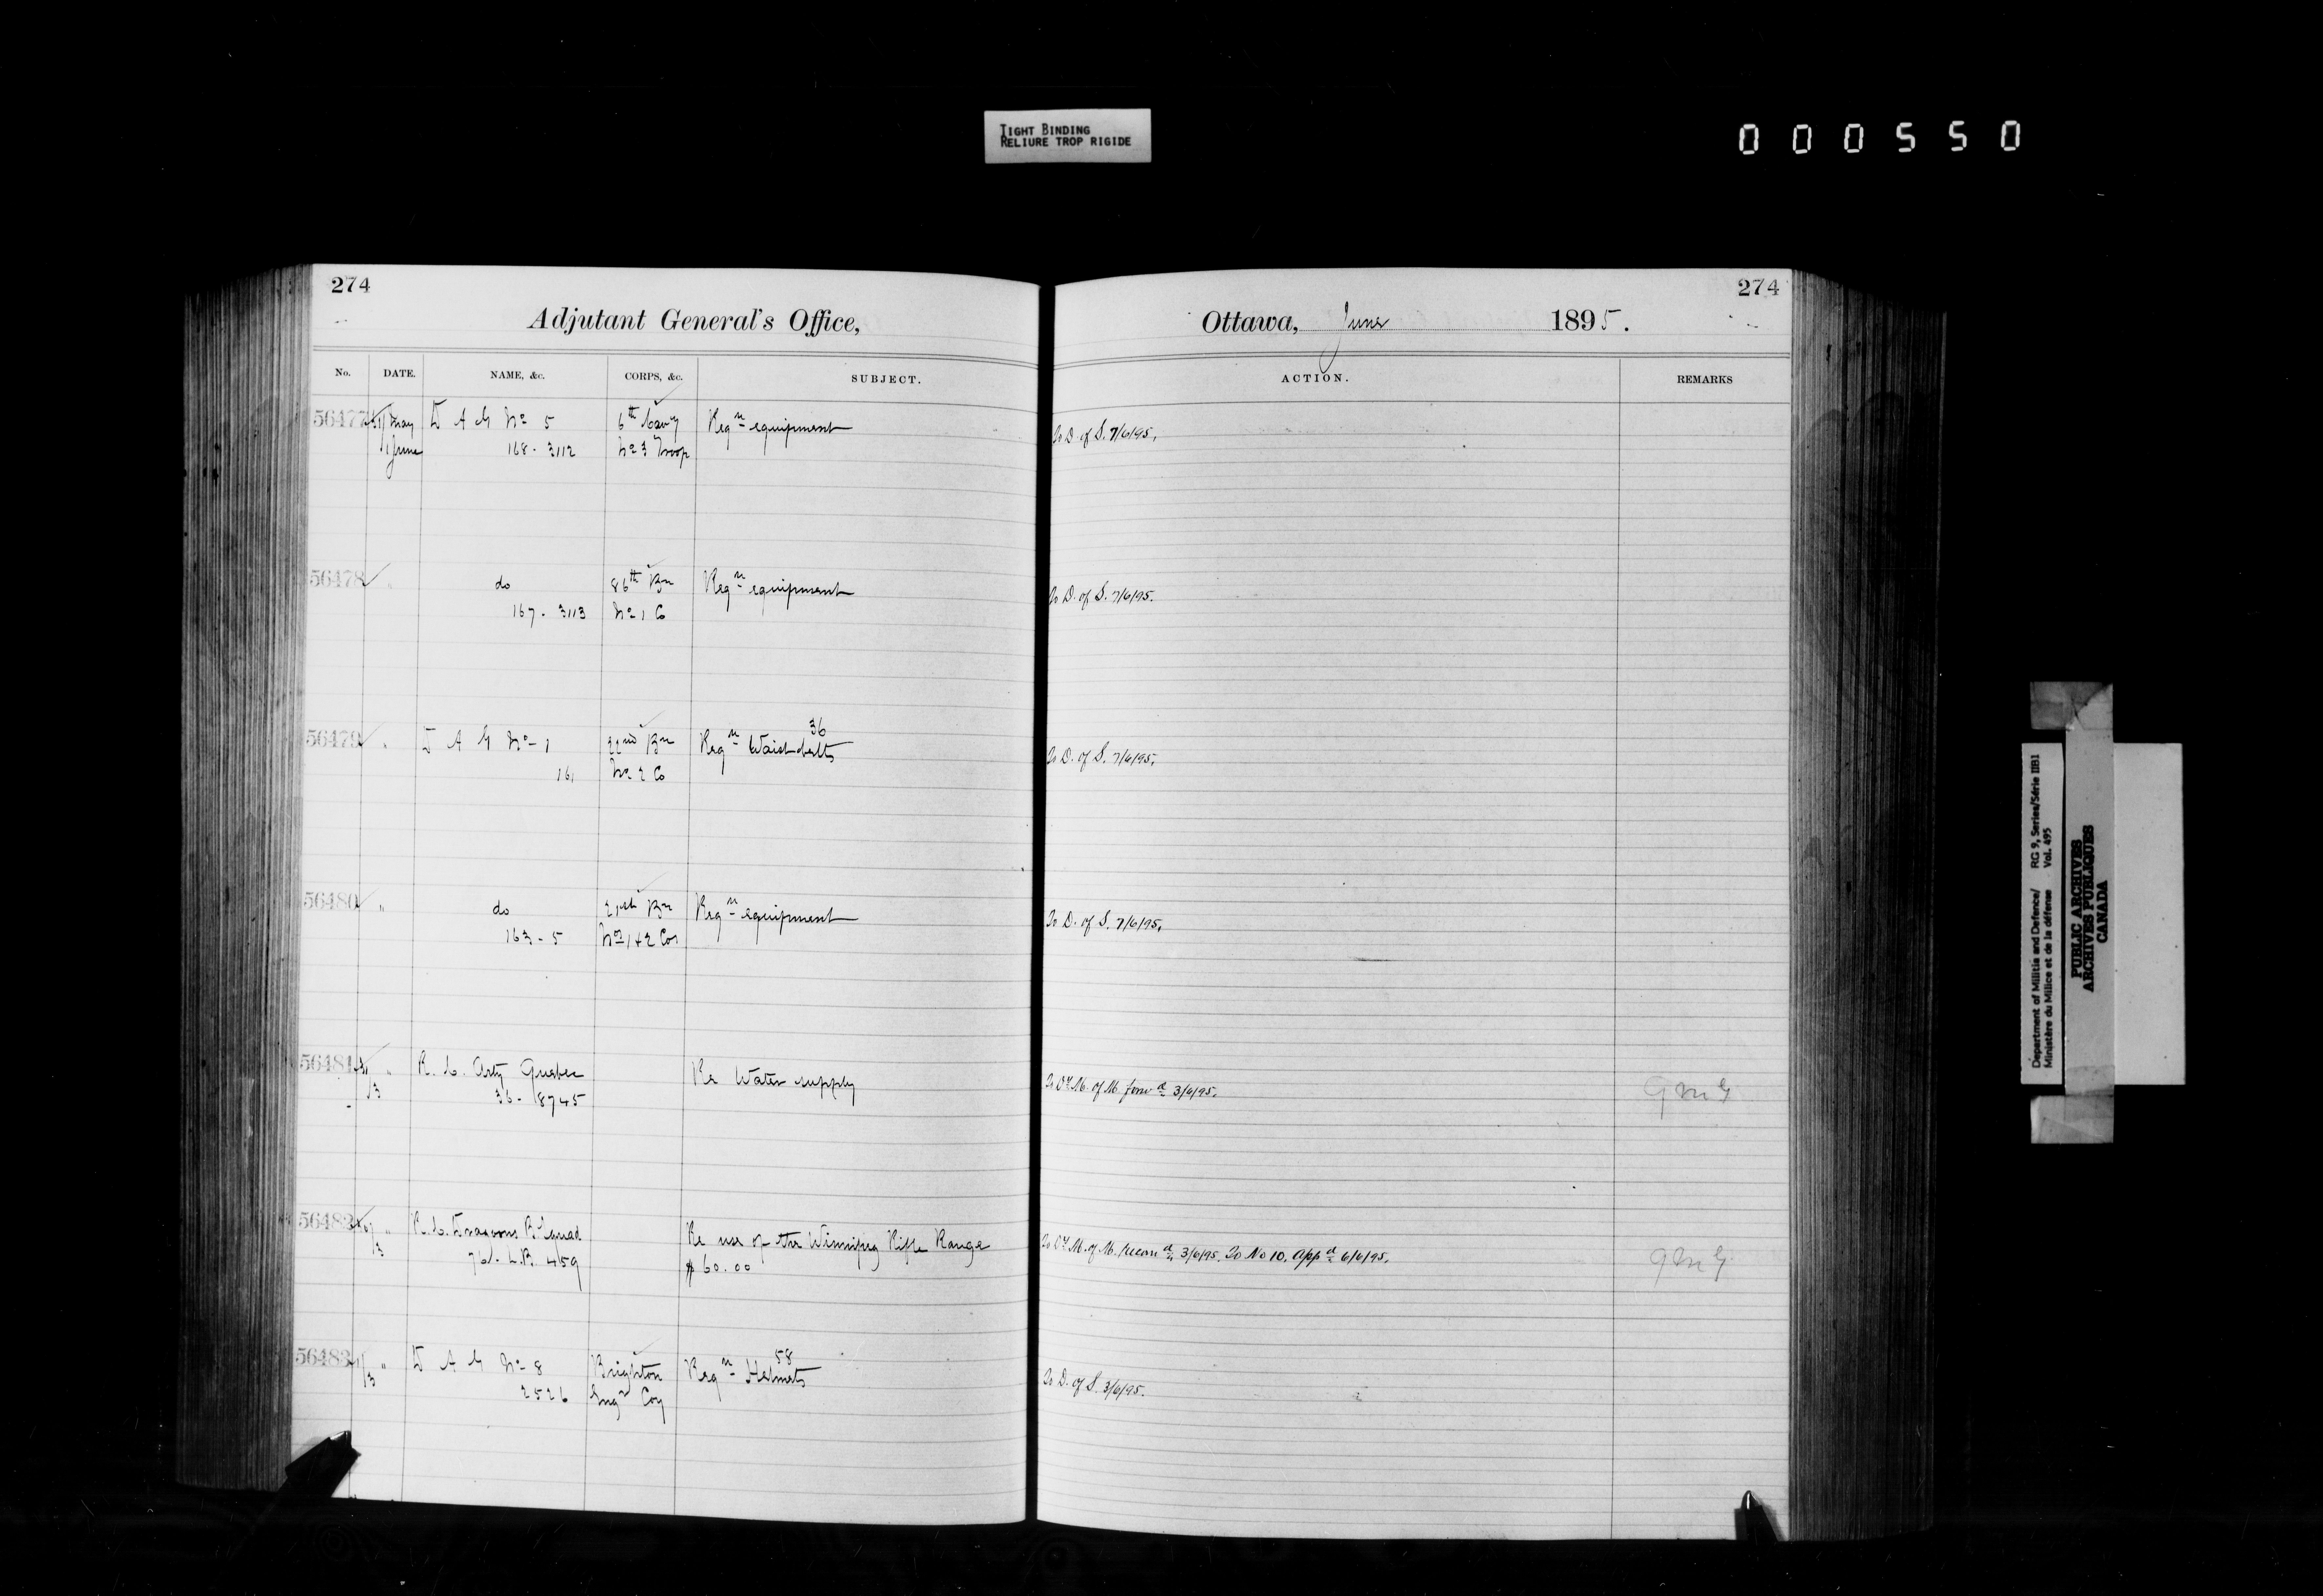 TIGHT BINDING
RELIURE TROP RIGIDE
000550
274
Adjutant General's Office,
No. DATE. NAME, &c. CORPS, &c. SUBJECT.
56477 31/May D A G No 5 6th Cavy Reqn equipment
1/June 168 - 3112 No 3 Troop
56478 " do 86th Bn Reqn equipment
167 - 3113 No 1 Co
56479 " D A G No 1 22nd Bn Reqn Waist belts 36
161 No 2 Co
56480 " do 21st Bn Reqn equipment
163 - 5 Nos 1 & 2 Cos
56481 31/ " R. C. Arty Quebec Re Water supply
/3 36 - 8745
56482 " R. C. Dragoons B Squad Re use of the Winnipeg Rifle Range
/3 76 - L.B. 459 $60.00
56483 1/ " D A G No 8 Brighton Reqn Helmets 58
/3 2526 Engr Coy
274
Ottawa, June 1895.
ACTION. REMARKS
To D. of S. 7/6/95.
To D. of S. 7/6/95.
To D. of S. 7/6/95.
To D. of S. 7/6/95.
To Dy M. of M. forwd 3/6/95. QMG
To Dy M. of M. recomd 3/6/95. To No 10. appd 6/6/95. QMG
To D. of S. 3/6/95.
Department of Militia and Defence/ RG 9, Series/Série IIB1
Ministère du Milice et de la défense Vol. 495
PUBLIC ARCHIVES
ARCHIVES PUBLIQUES
CANADA